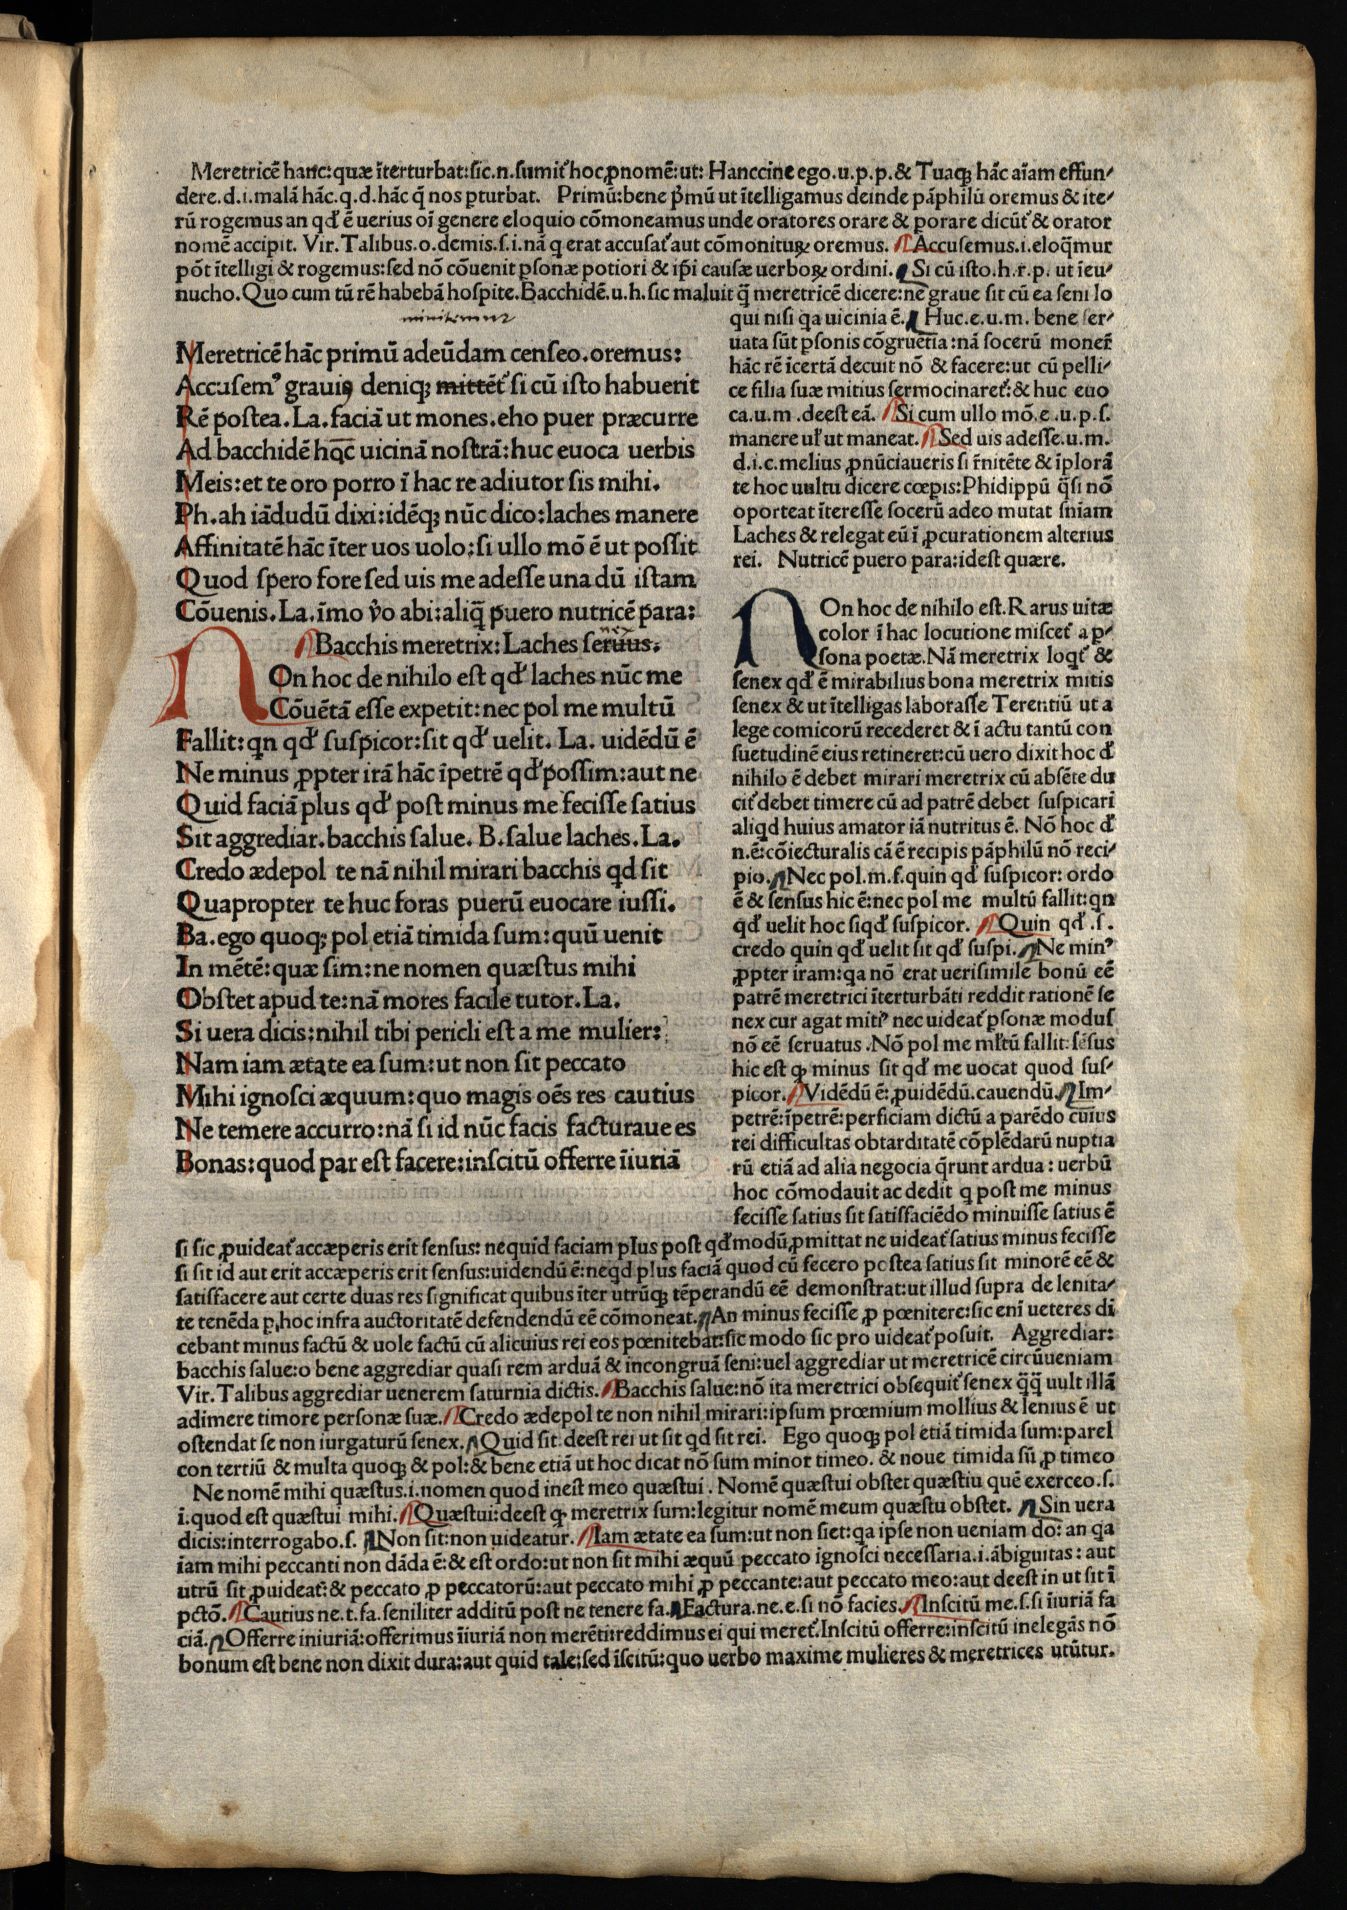 Meretricē hanc:quæ īterturbat:sic.n.sumit᷑ hoc ꝓnomē:ut: Hanccine ego.u.p.p.& Tuaqꝫ hāc aīam effun⸗
dere.d.i.malā hāc.q.d.hāc q̄ nos ꝑturbat. Primū:bene p̄mū ut ītelligamus deinde pāphilū oremus & ite⸗
rū rogemus an qď ē uerius oī genere eloquio cōmoneamus unde oratores orare & ꝑorare dicūt᷑ & orator
nomē accipit. Vir. Talibus.o.demis.s.i.nā q erat accusat᷑ aut cōmonituꝝ oremus. Accusemus.i.eloq̄mur
pōt ītelligi & rogemus:sed nō cōuenit ꝑsonæ potiori & ip̄i causæ uerboꝝ ordini. Si cū isto.h.r.p. ut īeu⸗
nucho.Quo cum tū rē habebā hospite.Bacchidē.u.h.sic maluit q̄ meretricē dicere:ne graue sit cū ea seni lo
qui nisi qa uicinia ē. Huc.e.u.m. bene ser⸗
uata sūt ꝑsonis cōgruētia:nā socerū moner̄
hāc rē īcertā decuit nō & facere:ut cū pelli⸗
ce filia suæ mitius sermocinaret᷑:& huc euo
ca.u.m.deest eā. Si cum ullo mō.e.u.p.s.
manere uľ ut maneat. Sed uis adesse.u.m.
d.i.c.melius ꝓnūciaueris si r̄nitēte & īplorā
te hoc uultu dicere cœpis:Phidippū q̄si nō
oporteat īteresse socerū adeo mutat sn̄iam
Laches & relegat eū ī ꝓcurationem alterius
rei. Nutricē puero para:idest quære.
minitemur
Meretricē hāc primū adeūdam censeo.oremus:
Accusemꝰ grauiꝰ deniqꝫ mittēt᷑ si cū isto habuerit
Rē postea.La.faciā ut mones.eho puer præcurre
Ad bacchidē hāc uicinā nostrā:huc euoca uerbis
Meis:et te oro porro ī hac re adiutor sis mihi.
Ph.ah iādudū dixi:idēqꝫ nūc dico:laches manere
Affinitatē hāc īter uos uolo:si ullo mō ē ut possit
Quod spero fore sed uis me adesse una dū istam
Cōuenis.La.īmo v̊o abi:aliq̄ puero nutricē para:
Bacchis meretrix:Laches seruus.
NOn hoc de nihilo est qď laches nūc me
Cōuētā esse expetit:nec pol me multū
Fallit:qn qď suspicor:sit qď uelit. La. uidēdū ē
Ne minus ꝓpter irā hāc īpetrē qď possim:aut ne
Quid faciā plus qď post minus me fecisse satius
Sit aggrediar.bacchis salue. B.salue laches.La.
Credo ædepol te nā nihil mirari bacchis qd sit
Quapropter te huc foras puerū euocare iussi.
Ba.ego quoqꝫ pol etiā timida sum:quū uenit
In mētē:quæ sim:ne nomen quæstus mihi
Obstet apud te:nā mores facile tutor.La.
Si uera dicis:nihil tibi pericli est a me mulier:
Nam iam ætate ea sum:ut non sit peccato
Mihi ignosci æquum:quo magis oēs res cautius
Ne temere accurro:nā si id nūc facis facturaue es
Bonas:quod par est facere:inscitū offerre īiuriā
NOn hoc de nihilo est.Rarus uitæ
color ī hac locutione miscet᷑ a ꝑ⸗
sona poetæ.Nā meretrix loqt᷑ &
senex qď ē mirabilius bona meretrix mitis
senex & ut ītelligas laborasse Terentiū ut a
lege comicorū recederet & ī actu tantū con
suetudinē eius retineret:cū uero dixit hoc ď
nihilo ē debet mirari meretrix cū absēte du
cit᷑ debet timere cū ad patrē debet suspicari
aliqd huius amator iā nutritus ē. Nō hoc ď
n.ē:cōiecturalis cā ē recipis pāphilū nō reci⸗
pio. Nec pol.m.f.quin qď suspicor: ordo
ē & sensus hic ē:nec pol me multū fallit:qn
qď uelit hoc siqď suspicor. Quin qď.s.
credo quin qď uelit sit qď suspi. Ne minꝰ
ꝓpter iram:qa nō erat uerisimile bonū eē
patrē meretrici īterturbāti reddit rationē se
nex cur agat mitiꝰ nec uideat᷑ ꝑsonæ modus
nō eē seruatus.Nō pol me ml̄tū fallit:sēsus
hic est ꝙ minus sit qď me uocat quod sus⸗
picor. Vidēdū ē:ꝓuidēdū.cauendū. Im⸗
petrē:īpetrē:perficiam dictū a parēdo cuius
rei difficultas obtarditatē cōplēdarū nuptia
rū etiā ad alia negocia q̄runt ardua:uerbū
hoc cōmodauit ac dedit q post me minus
fecisse satius sit satisfaciēdo minuisse satius ē
si sic ꝓuideat᷑ accæperis erit sensus: nequid faciam plus post qď modū ꝓmittat ne uideat᷑ satius minus fecisse
si sit id aut erit accæperis erit sensus:uidendū ē:neqd plus faciā quod cū fecero postea satius sit minorē eē &
satisfacere aut certe duas res significat quibus īter utrūqꝫ tēperandū eē demonstrat:ut illud supra de lenita⸗
te tenēda ꝑ hoc infra auctoritatē defendendū eē cōmoneat. An minus fecisse ꝓ pœnitere:sic enī ueteres di
cebant minus factū & uole factū cū alicuius rei eos pœnitebat:sic modo sic pro uideat᷑ posuit. Aggrediar:
bacchis salue:o bene aggrediar quasi rem arduā & incongruā seni:uel aggrediar ut meretricē circūueniam
Vir.Talibus aggrediar uenerem saturnia dictis. Bacchis salue:nō ita meretrici obsequit᷑ senex q̄q̄ uult illā
adimere timore personæ suæ. Credo ædepol te non nihil mirari:ipsum prœmium mollius & lenius ē ut
ostendat se non iurgaturū senex. Quid sit deest rei ut sit qd sit rei. Ego quoqꝫ pol etiā timida sum:parel
con tertiū & multa quoqꝫ & pol:& bene etiā ut hoc dicat nō sum minor timeo.& noue timida sū ꝓ timeo
Ne nomē mihi quæstus.i.nomen quod inest meo quæstui. Nomē quæstui obstet quæstiu quē exerceo.s.
i.quod est quæstui mihi. Quæstui:deest ꝙ meretrix sum:legitur nomē meum quæstu obstet. Sin uera
dicis:interrogabo.s. Non sit:non uideatur. Iam ætate ea sum:ut non siet:qa ipse non ueniam do: an qa
iam mihi peccanti non dāda ē:& est ordo:ut non sit mihi æquū peccato ignosci necessaria.i.ābiguitas:aut
utrū sit ꝓuideat᷑:& peccato ꝓ peccatorū:aut peccato mihi ꝓ peccante:aut peccato meo:aut deest in ut sit ī
pctō. Cautius ne.t.fa.seniliter additū post ne tenere fa. Factura.ne.e.si nō facies. Inscitū me.s.si īiuriā fa
ciā. Offerre iniuriā:offerimus īiuriā non merēti:reddimus ei qui meret᷑.Inscitū offerre:inscitū inelegās nō
bonum est bene non dixit dura:aut quid tale:sed īscitū:quo uerbo maxime mulieres & meretrices utūtur.